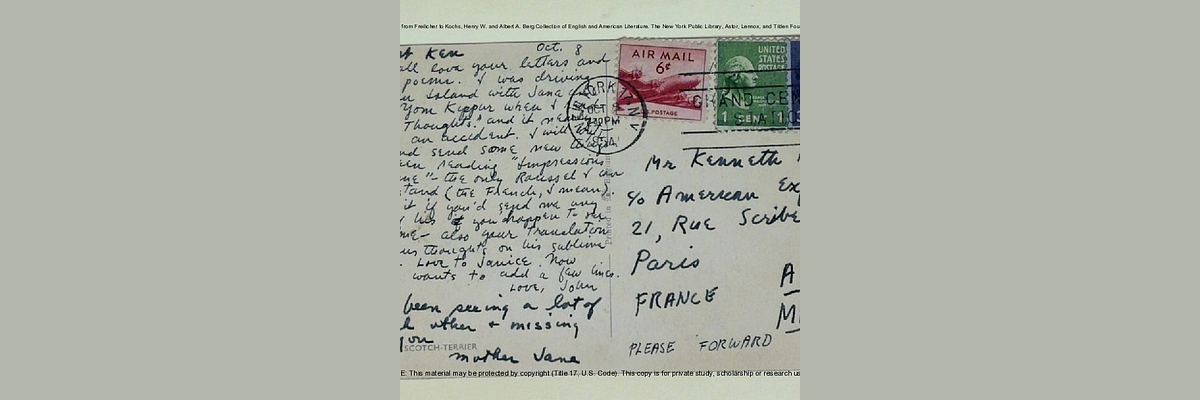 from Freilicher to Kochs, Henry W. and Albert A. Berg Collection of English and American Literature. The New York Public Library, Astor, Lennox, and Tilden Fou
Ken Oct. 8
all love your letters and
poems. I was driving
Island with Jane
Yom Kippur when I
Thoughts", and it nearly
an accident. I will
nd send some new
een reading "Impressions
ue" - the only Roussel I can
tand (the French, I mean).
it if you'd send me any
his if you happen to see
me - also your translation
us thoughts on his sublime
. Love to Janice. Now
wants to add a few lines.
Love, John
been seeing a lot of
other + missing
you
SCOTCH-TERRIER
mother Jane
AIR MAIL
6¢
POSTAGE
UNITED
STATES
POSTAGE
1 CENT 1
OCT
PM
GRAND CEN
STATIO
Mr Kenneth
c/o American Exp
21, Rue Scribe
Paris
FRANCE
A
M
PLEASE FORWARD
Printed in
E: This material may be protected by copyright (Title 17. U.S. Code). This copy is for private study, scholarship or research us